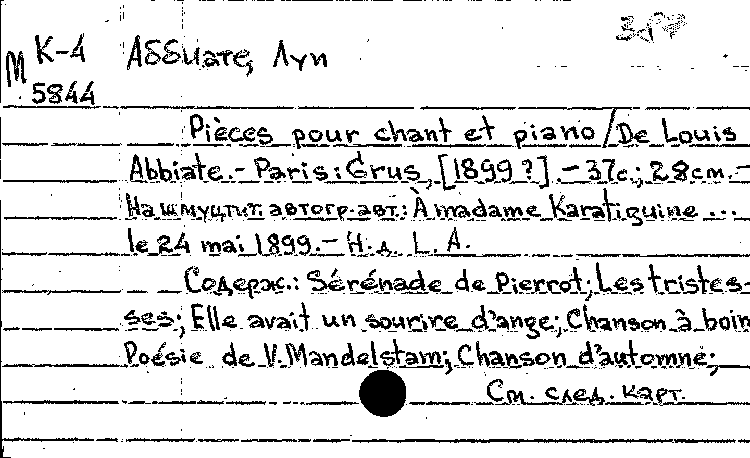 387
М К-4 Аббиате, Луи
5844
Pièces pour chant et piano/De Louis
Abbiate.- Paris: Grus, [1899?]. - 37с.; 28см.-
На шмуцтит. автогр. авт.: À madame Karatiguine ...
le 24 mai 1899.- Н.д. L. A.
Содерж.: Sérénade de Pierrot; Les tristes-
ses; Elle avait un sourire d'ange; Chanson à boir
Poésie de V. Mandelstam; Chanson d'automne;
См. след. карт.